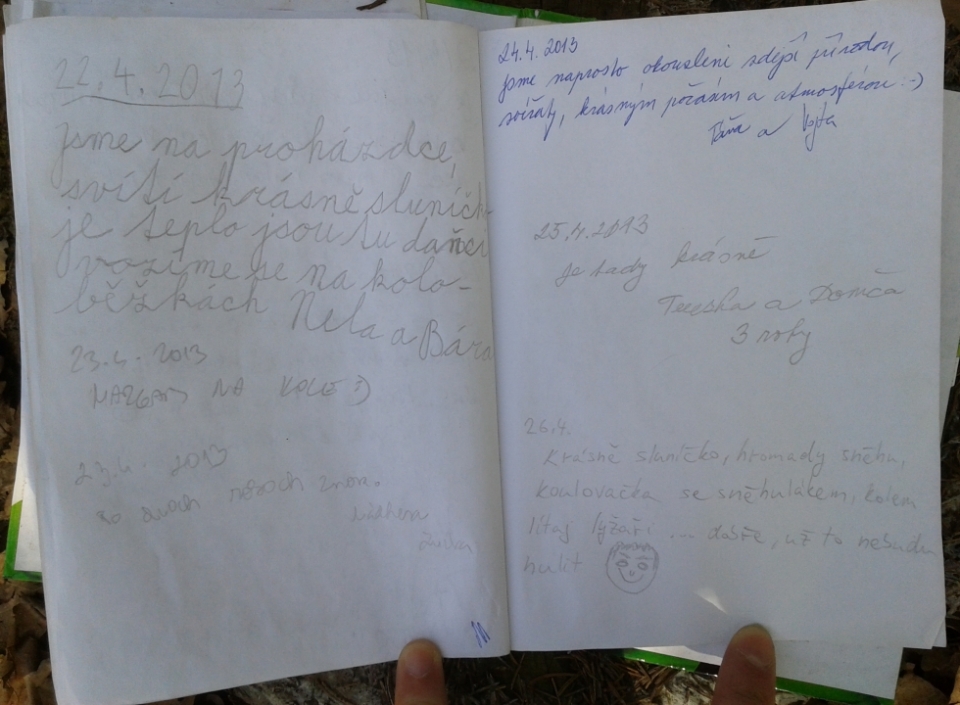 22.4.2013
Jsme na proházdce,
svítí krásně sluníčk
je teplo jsou tu daňci
vozíme se na kolo-
běžkách Nela a Bára
23.4. 2013
NA KOLE :)
23.4. 2013
po dvou rococh znova.
24.4. 2013
Jsme naprosto okouzleni zdejší přírodou,
zvířaty, krásným počasím a atmosférou :-)
Táňa a Vojta
25.4.2013
je tady krásně
Terezka a Domča
3 roky
26.4.
Krásně sluníčko, hromady sněhu,
koulovačka se sněhulákem, kolem
lítaj lyžaři ... dobře, už to nebudu
hulit